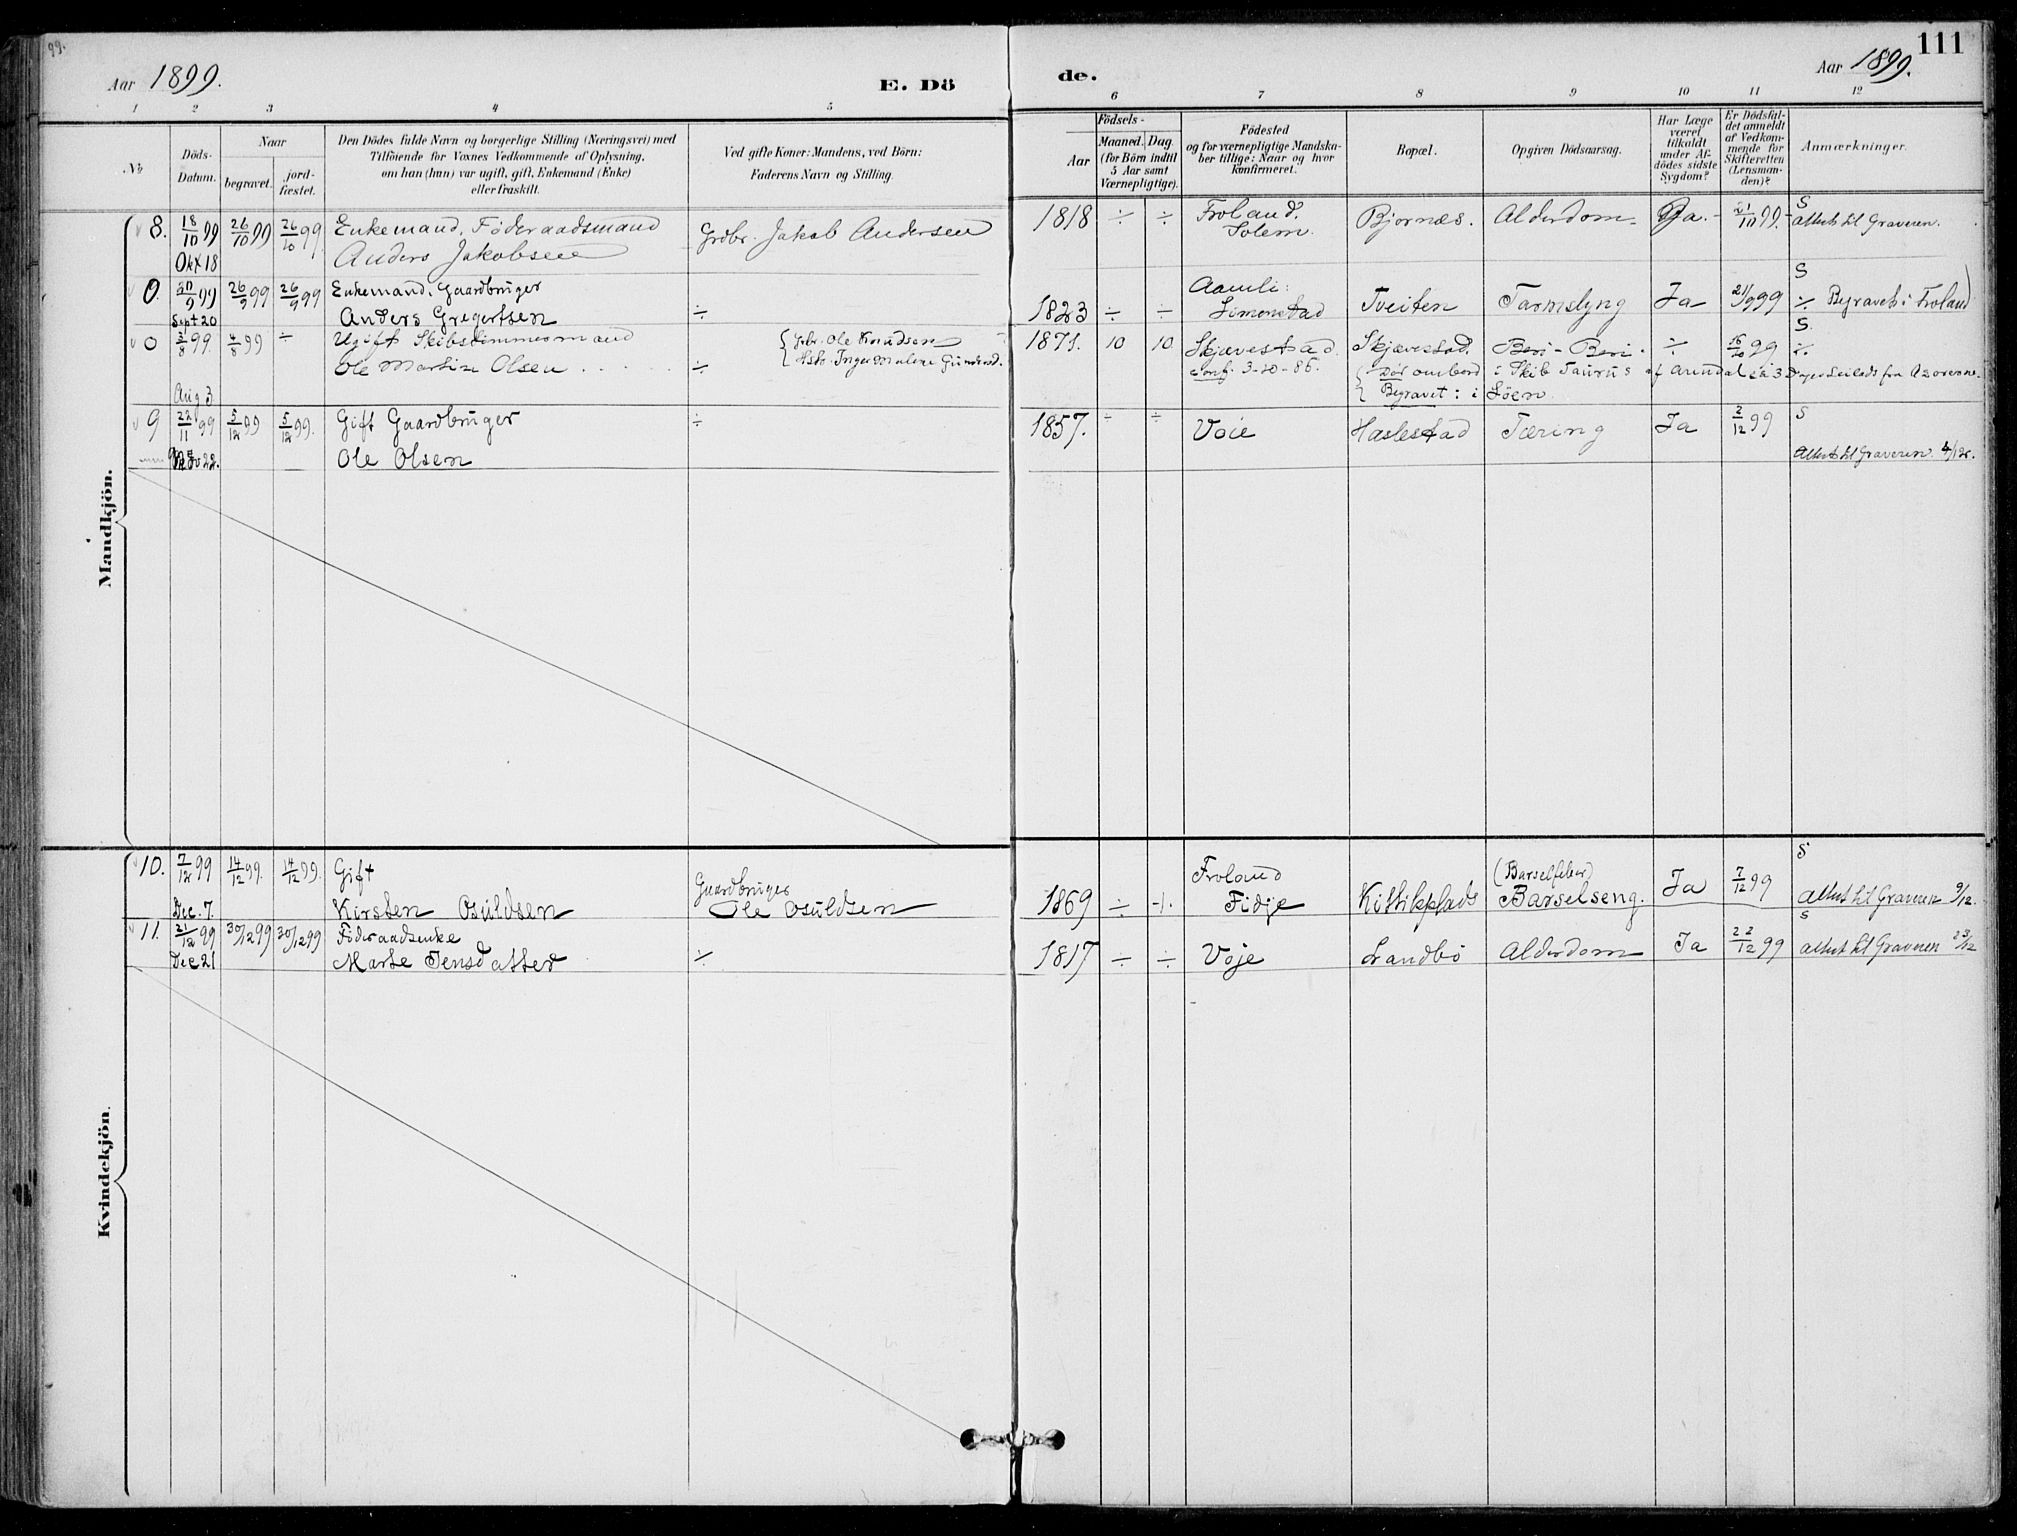 99.
Aar 1899.
E. Dö
de.
Aar 1899.
111
1 2 3 4 5 6 7 8 9 10 11 12
No
Döds-
Datum.
Naar
begravet.
jord-
fæstet.
Den Dödes fulde Navn og borgerlige Stilling (Næringsvei) med
Tilföiende for Voxnes Vedkommende af Oplysning,
om han (hun) var ugift, gift, Enkemand (Enke)
eller fraskilt.
Ved gifte Koner: Mandens, ved Börn:
Faderens Navn og Stilling.
Födsels-
Aar
Maaned. Dag.
(for Börn indtil
5 Aar samt
Værnepligtige).
Födested
og for værnepligtige Mandska-
ber tillige: Naar og hvor
konfirmeret.
Bopæl.
Opgiven Dödsaarsag.
Har Læge
været
tilkaldt
under Af-
dödes sidste
Sygdom?
Er Dödsfal-
det anmeldt
af Vedkom-
mende for
Skifteretten
(Lensman-
den)?
Anmærkninger.
Mandkjön.
8. 18/10 99 26/10 99 26/10 99 Enkemand, Föderaadsmand Grdbr. Jakob Andersen 1818 ÷ ÷ Froland. Bjornæs. Alderdom Ja. 21/10 99. S
Okt 18 Anders Jakobsen Solem Attest til Graveren.
0. 20/9 99 26/9 99 26/9 99 Enkemand. Gaardbruger ÷ 1823 ÷ ÷ Aamli: Tveiten Tarmslyng Ja 21/9 99 S
Sept 20 Anders Gregertsen Simonstad ÷ Begravet i Froland
0 3/8 99. 4/8 99 ÷ Ugift Skibstimmermand Gbr. Ole Knudsen 1871. 10 10 Skjævestad. Skjævestad. Beri-Beri. ÷ 16/10 99 S.
Ole Martin Olsen ÷ Hstr. Inger Malene Gundersd. conf. 3-10-86. Död ombord i Skib Taurus af Arendal ca 3 Dages Seilads fra Azorerne.
Aug 3 Begravet: i Söen
9 22/11 99 5/12 99 5/12 99. Gift Gaardbruger ÷ 1857. ÷ ÷ Voie Haslestad Tæring Ja 2/12 99 S
Nov 22. Ole Olsen Attest til Graveren 4/12.
Kvindekjön.
10. 7/12 99 14/12 99. 14/12 99. Gift Gaardbruger 1869 ÷ ÷ Froland (Barselfeber) Ja 7/12 99 S
Dec. 7. Kirsten Osuldsen Ole Osuldsen Fidje Kittilsplads Barselseng. Attest til Graveren 9/12.
11. 21/12 99 30/12 99 30/12 99 Föderaadsenke S
Dec 21 Marte Jensdatter ÷ 1817 ÷ ÷ Voje Landbö Alderdom Ja 22/12 99 Attest til Graveren 23/12